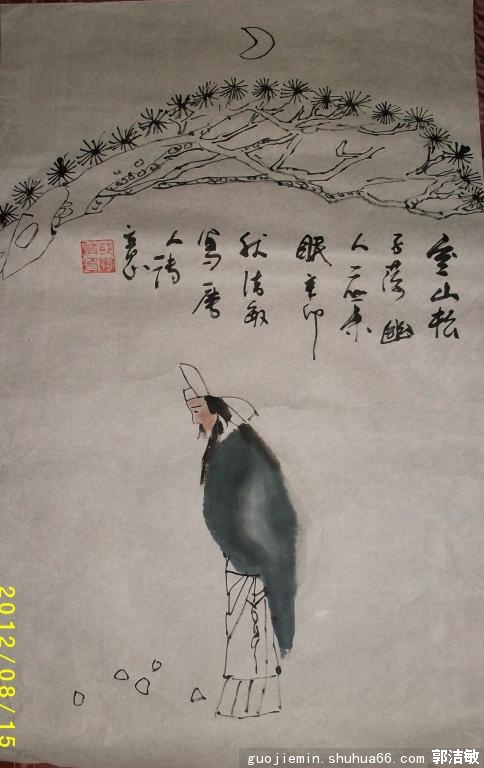 空山松
子落幽
人应未
眠辛卯
秋洁敏
写唐
人诗
2012/08/15
guojiemin.shuhua66.com 郭洁敏